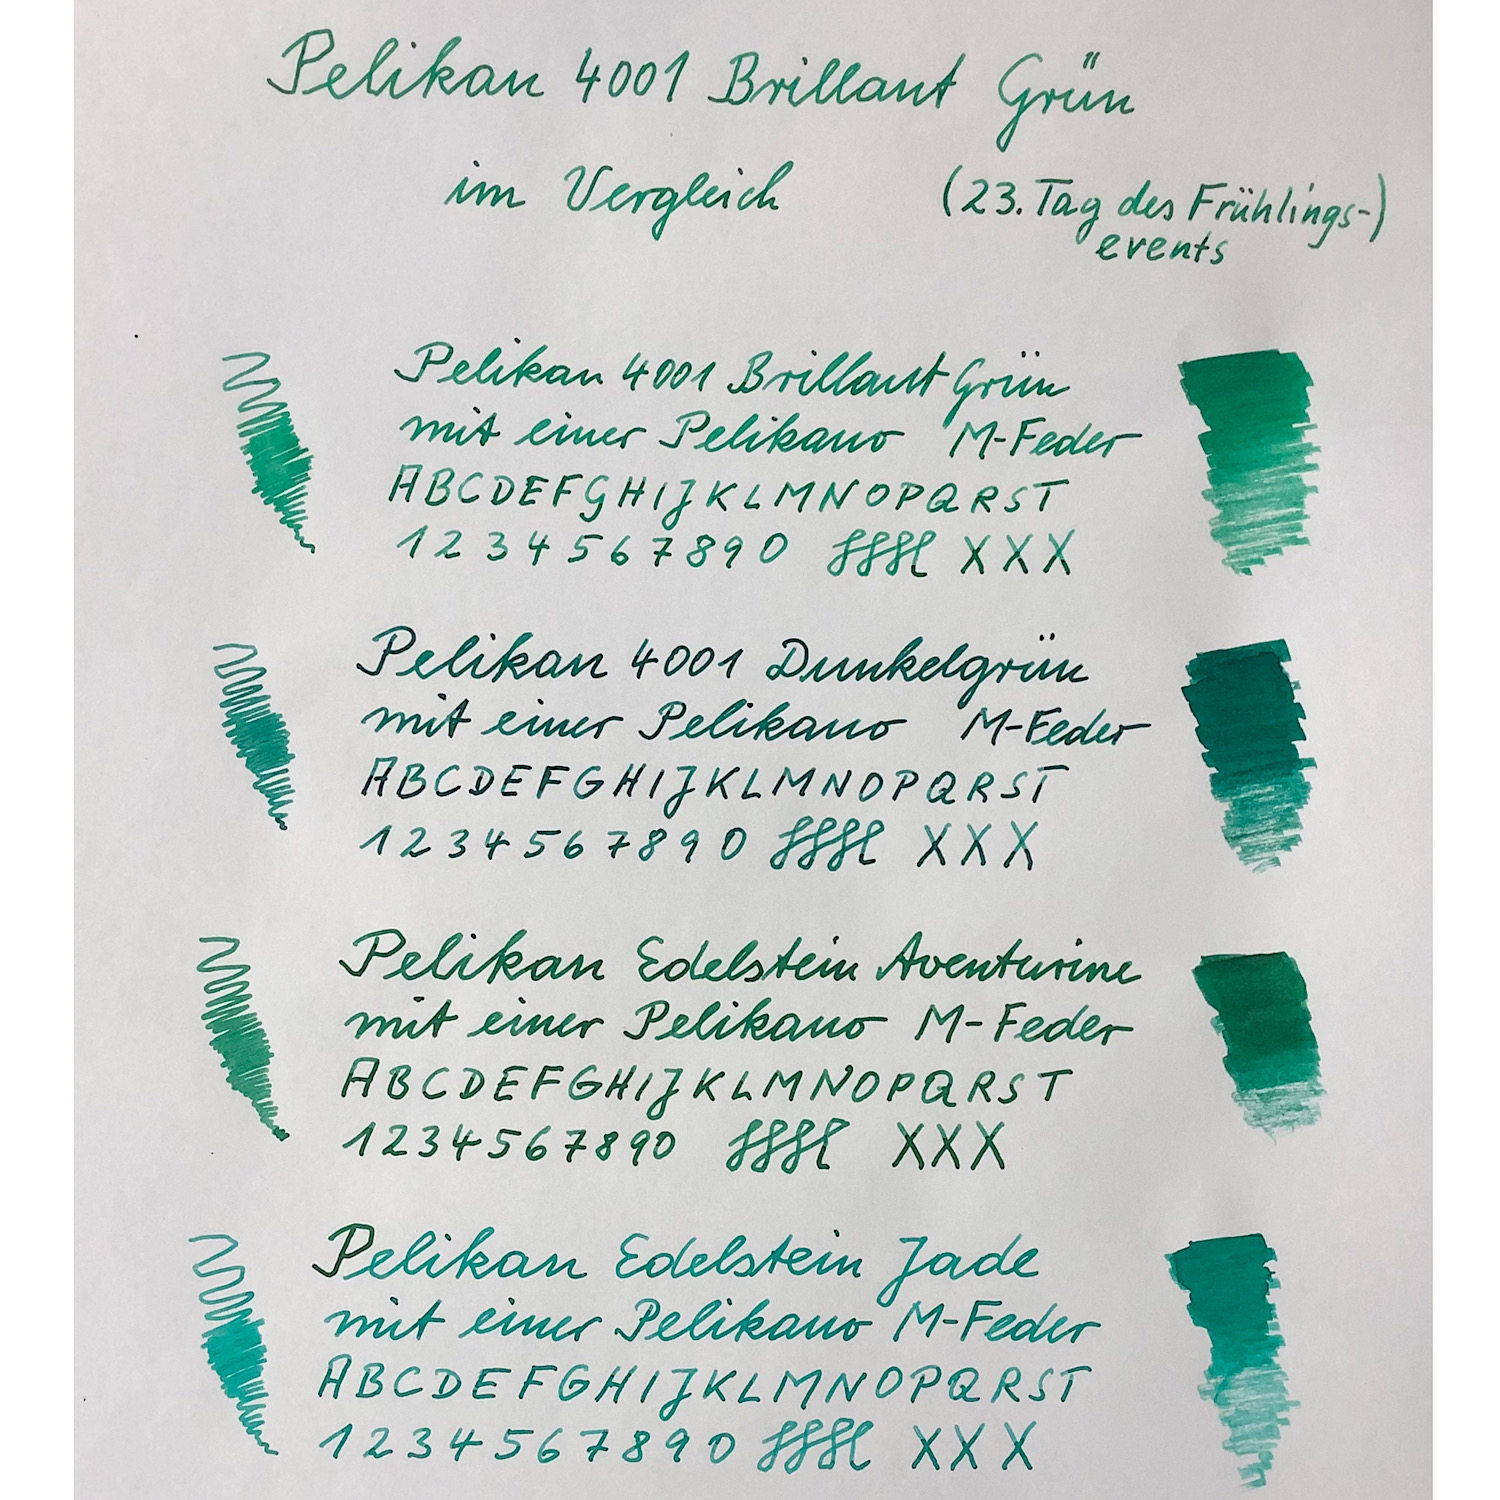 Pelikan 4001 Brillant Grün
im Vergleich
(23. Tag des Frühlings-)
events
Pelikan 4001 Brillant Grün
mit einer Pelikano M-Feder
ABCDEFGHIJKLMNOPQRST
1234567890 XXX
Pelikan 4001 Dunkelgrün
mit einer Pelikano M-Feder
ABCDEFGHIJKLMNOPQRST
1234567890 XXX
Pelikan Edelstein Aventurine
mit einer Pelikano M-Feder
ABCDEFGHIJKLMNOPQRST
1234567890 XXX
Pelikan Edelstein Jade
mit einer Pelikano M-Feder
ABCDEFGHIJKLMNOPQRST
1234567890 XXX